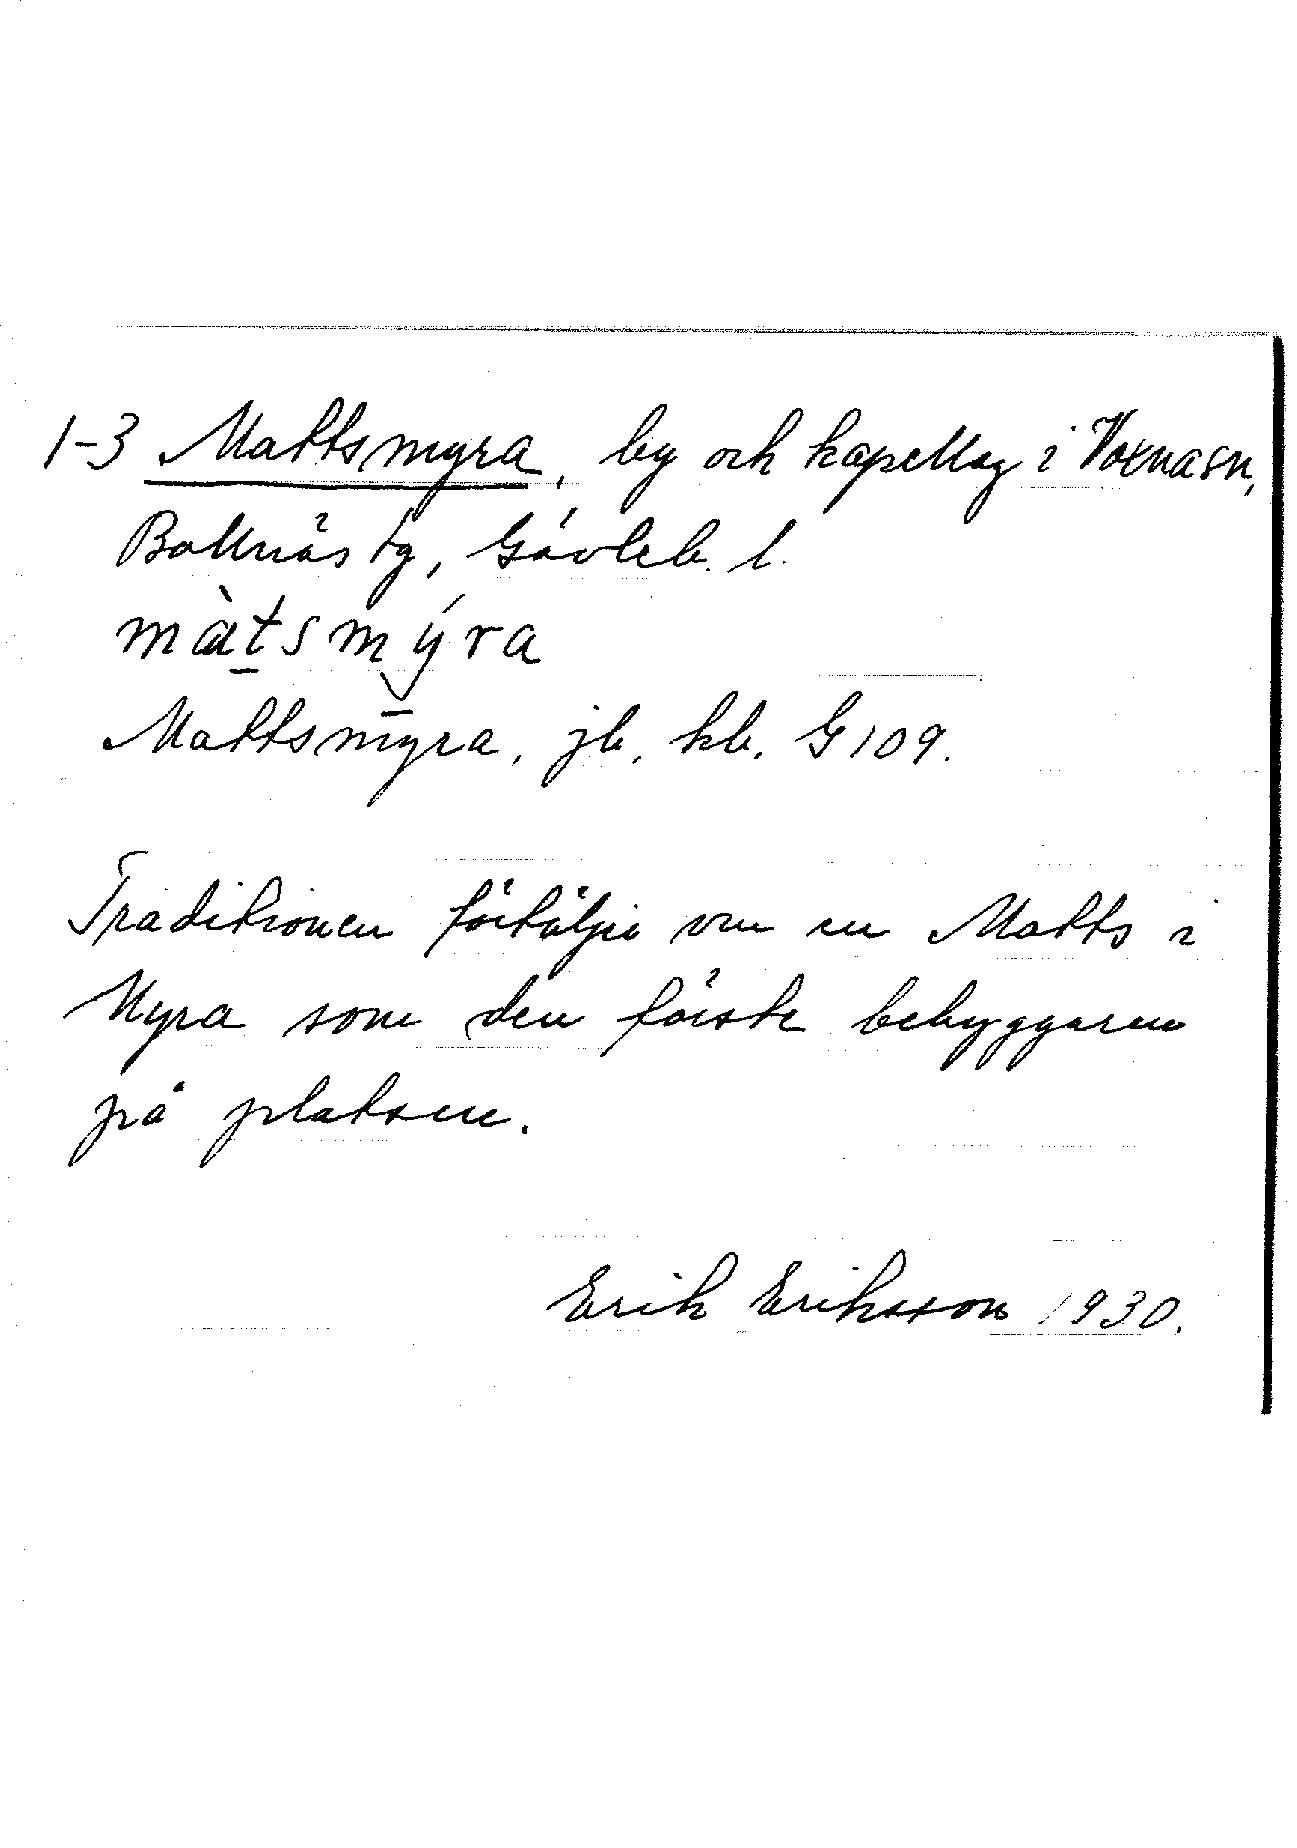 1-3 Mattsmyra, by och kapellag i Voxna sn,
Bollnäs tg, Gävleb. l.
màtsmýra
Mattsmyra, jb, kb, G109.
Traditionen förtäljer om en Matts i
Myra som den förste bebyggaren
på platsen.
Erik Eriksson 1930.